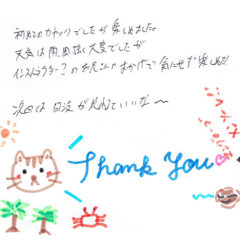 初めてのカヤックでしたが楽しめました。
天気は雨、風強く大変でしたが
インストラクター?のお兄さんのおかげで気にせず楽しめた!
次回は日没が見れていいな〜
Thank You